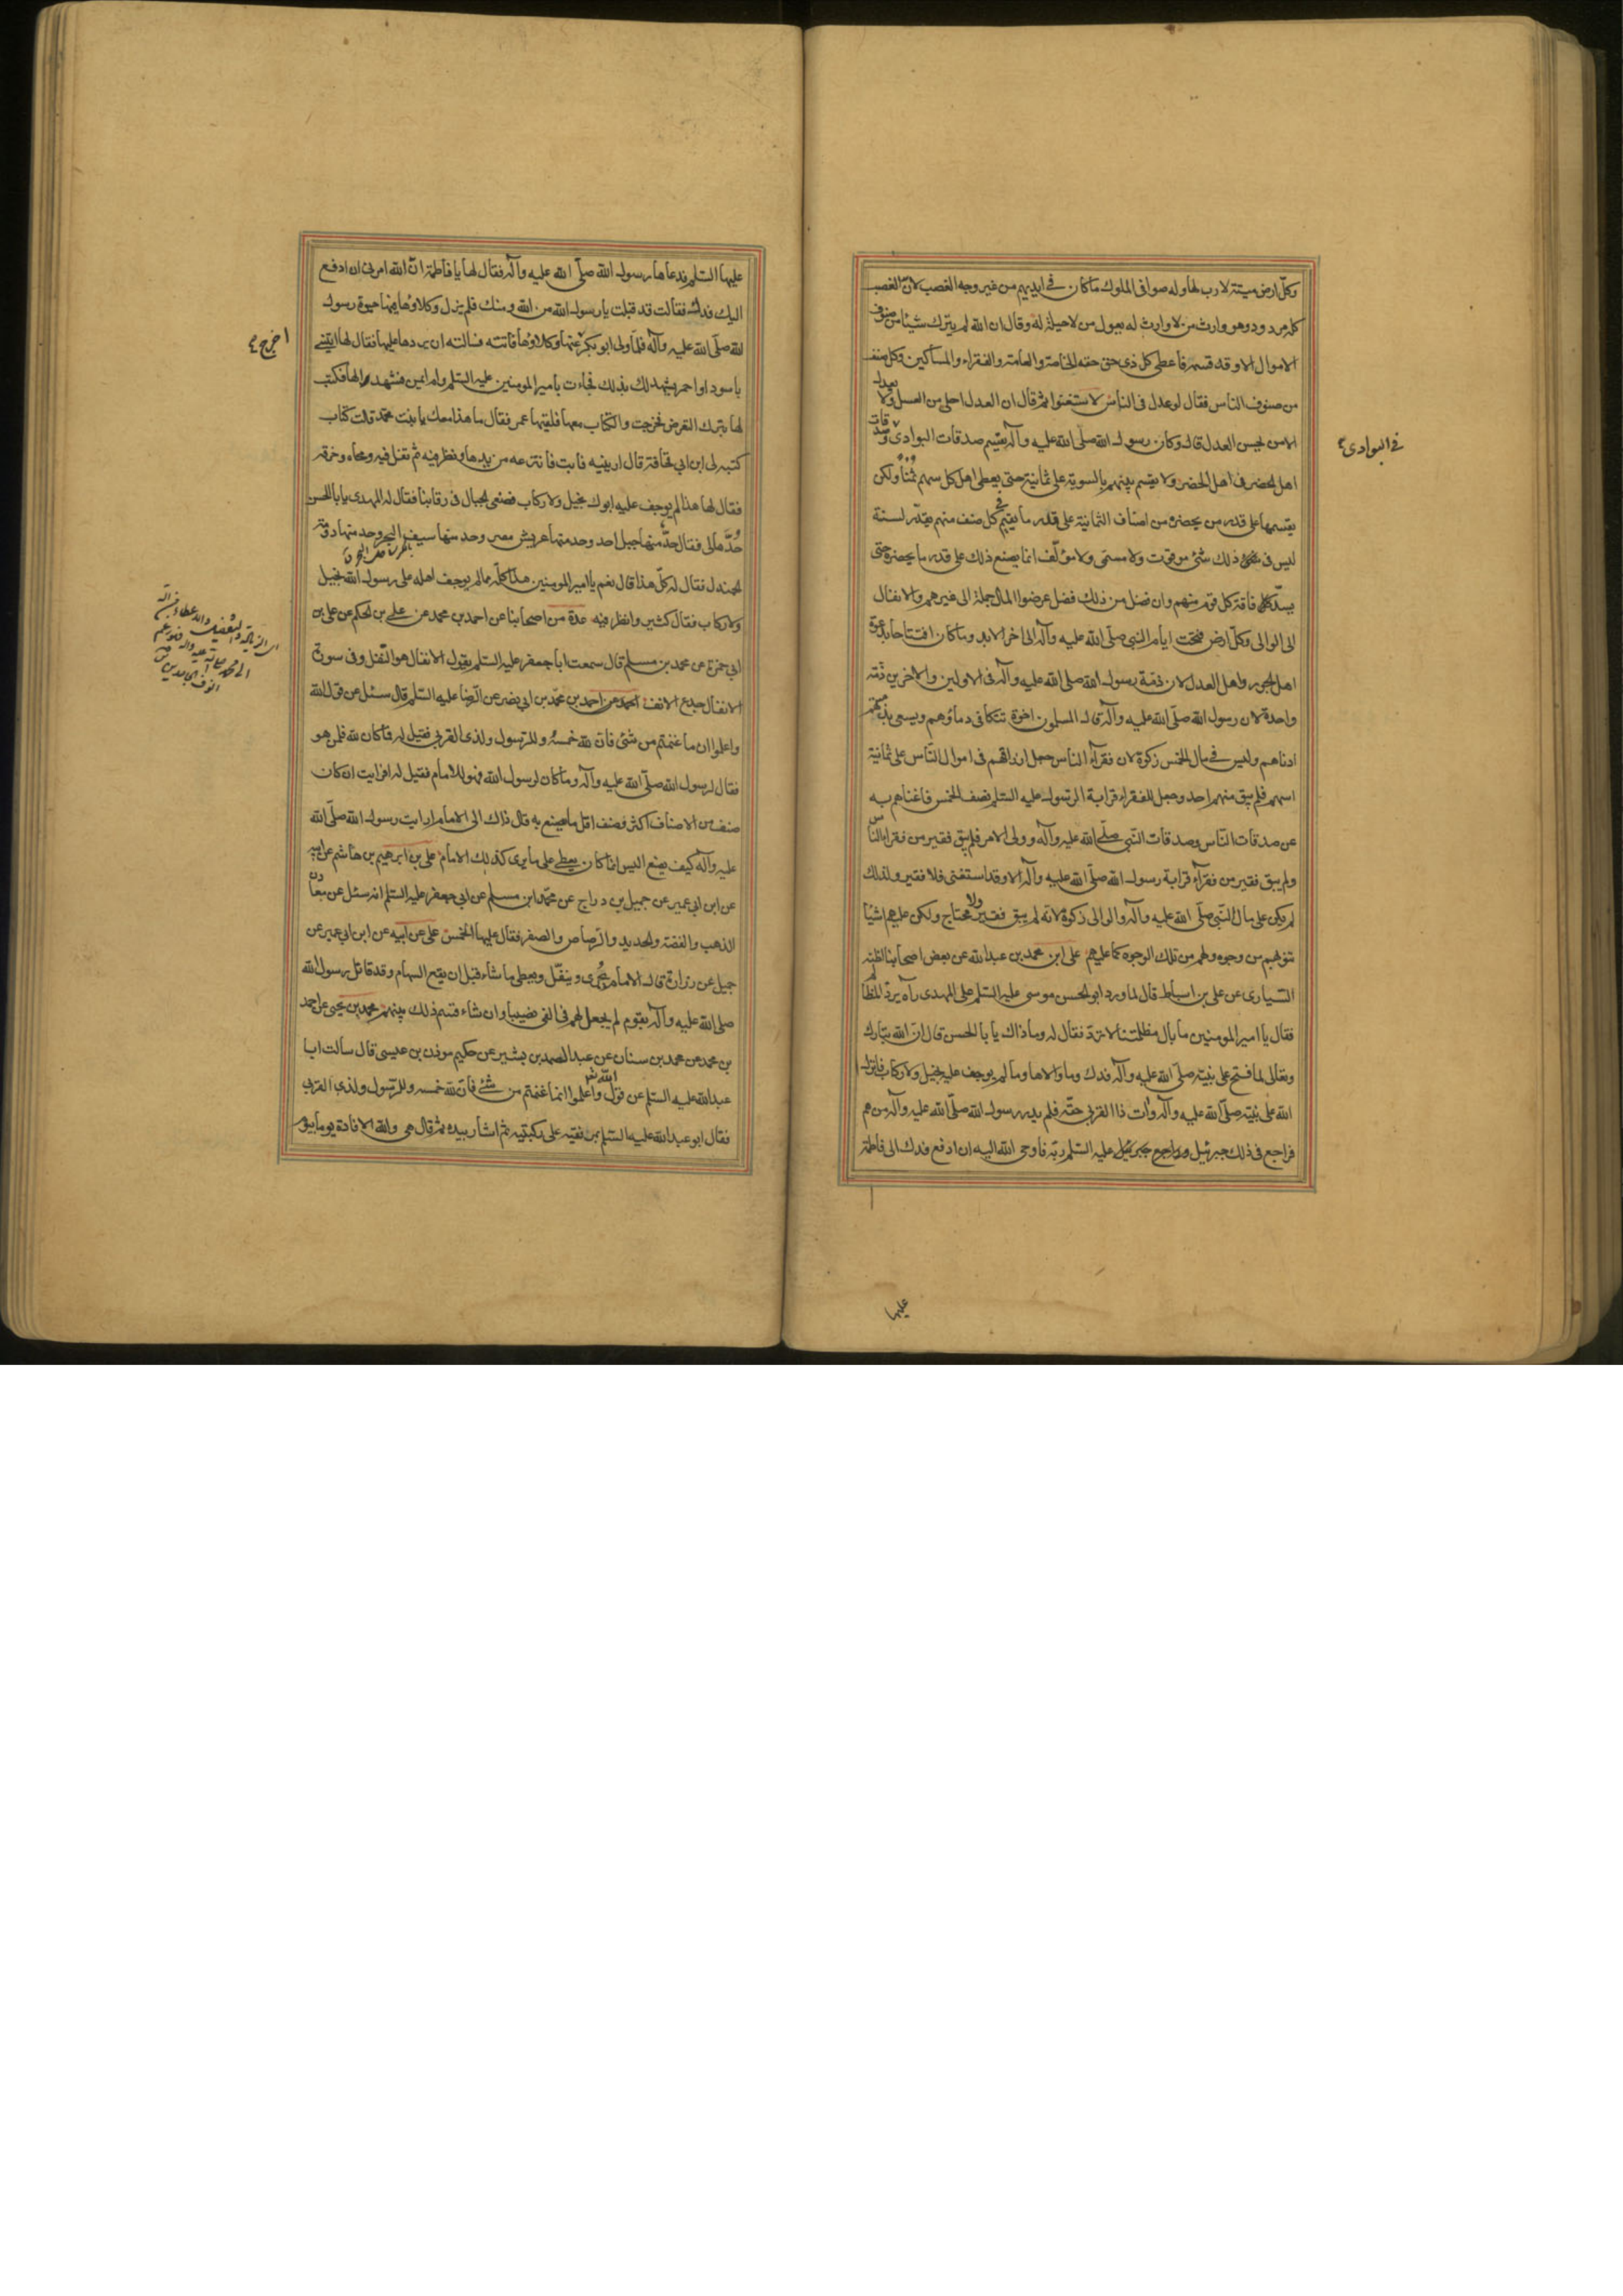 وكلّ ارض ميتة لا رب لها وله صوافى الملوك ما كان فى ايديهم من غير وجه الغصب لان الغصب
كله مردود وهو وارث من لا وارث له يعول من لا حيلة له وقال ان الله لم يترك شيئا من صنوف
الاموال الا وقد قسمه فاعطى كل ذى حق حقه الخاصة والعامة والفقراء والمساكين وكل صنف
من صنوف الناس فقال لو عدل فى الناس لاستغنوا ثم قال ان العدل احلى من العسل ولا يعدل
الا من يحسن العدل قال وكان رسول الله صلّى الله عليه وآله يقسم صدقات البوادى وصدقات
فى البوادى
اهل الحضر فى اهل الحضر ولا يقسم بينهم بالسوية على ثمانية حتى يعطى اهل كل سهم ثمنا ولكن
يقسمها على قدر من يحضره من اصناف الثمانية على قدر ما يقيم كل صنف منهم يقدّر لسنة
ليس فى ذلك شئ موقوت ولا مسمى ولا مؤلّف انما يصنع ذلك على قدر ما يحضره حتى
يسدّ كل فاقة كل قوم منهم وان فضل من ذلك فضل عرضوا المال جملة الى غيرهم والانفال
الى الوالى وكلّ ارض فتحت ايام النبى صلّى الله عليه وآله الى اخر الابد وما كان افتتاحا بدعوة
اهل الجور واهل العدل لان ذمة رسول الله صلى الله عليه وآله فى الاولين والاخرين ذمّة
واحدة لان رسول الله صلّى الله عليه وآله قال المسلمون اخوة تتكافى دماؤهم ويسعى بذمتهم
ادناهم وليس فى مال الخمس زكوة لان فقرآء الناس جعل ارزاقهم فى اموال النّاس على ثمانية
اسهم فلم يبق منهم احد وجعل للفقراء قرابة الرّسول عليه السّلم نصف الخمس فاغناهم به
عن صدقات النّاس وصدقات النّبى صلّى الله عليه وآله وولى الامر فلم يبق فقير من فقراء النّاس
ولم يبق فقير من فقرآء قرابة رسول الله صلّى الله عليه وآله الا وقد استغنى فلا فقير ولذلك
لم يكن على مال النّبى صلّى الله عليه وآله والوالى زكوة لانّه لم يبق فقير ولا محتاج ولكن عليهم اشيا
تنوبهم من وجوه ولهم من تلك الوجوه كما عليهم على ابن محمد بن عبدالله عن بعض اصحابنا اظنه
السّيارى عن على بن اسباط قال لما ورد ابو الحسن موسى عليه السّلم على المهدى رآه يردّ المظالم
فقال يا امير المومنين ما بال مظلمتنا لا تردّ فقال له وما ذاك يا با الحسن قال ان الله تبارك
وتعالى لما فتح على نبيّه صلّى الله عليه وآله فدك وما والاها وما لم يوجف عليه بخيل ولا ركاب فانزل
الله على نبيّه صلّى الله عليه وآله وات ذا القربى حقّه فلم يدر رسول الله صلّى الله عليه وآله من هم
فراجع فى ذلك جبرئيل وراجع جبرئيل عليه السّلم ربّه فأوحى الله اليه ان ادفع فدك الى فاطمة
عليها
عليها السّلم فدعاها رسول الله صلّى الله عليه وآله فقال لها يا فاطمة انّ الله امرنى ان ادفع
اليك فدك فقالت قد قبلت يا رسول الله من الله ومنك فلم يزل وكلاؤها فيها حيوة رسول
الله صلّى الله عليه وآله فلمّا ولى ابو بكر عنها وكلاؤها فأتته فسالته ان يردها عليها فقال لها ايتينى
اخرج
باسود او احمر يشهد لك بذلك فجاءت بأمير المومنين عليه السّلم وام ايمن فشهد لها فكتب
لها بترك التعرض فخرجت والكتاب معها فلقيها عمر فقال ما هذا معك يا بنت محمد قالت كتاب
كتبه لى ابن ابى قحافة قال ارينيه فابت فانتزعه من يدها ونظر فيه ثم تفل فيه ومحاه وخرقه
فقال لها هذا لم يوجف عليه ابوك بخيل ولا ركاب فضعى الجبال فى رقابنا فقال له المهدى يا با الحسن
حُدَّها لى فقال حدّ منها جبل احد وحد منها عريش مصر وحد منها سيف البحر وحد منها دومة
الجندل فقال له كلّ هذا قال نعم يا امير المومنين هذا كلّه مما لم يوجف اهله على رسول الله بخيل
ولا ركاب فقال كثير وانظر فيه عدة من اصحابنا عن احمد بن محمد عن على بن الحكم عن على بن
ابى حمزة عن محمد بن مسلم قال سمعت ابا جعفر عليه السّلم يقول الانفال هو النّفل وفى سورة
الانفال جدع الانف احمد عن احمد بن محمّد بن ابى نصر عن الرّضا عليه السّلم قال سئل عن قول الله
واعلموا ان ما غنمتم من شئ فان لله خمسه وللرّسول ولذى القربى فقيل له فما كان لله فلمن هو
فقال لرسول الله صلّى الله عليه وآله وما كان لرسول الله فهو للامام فقيل له افرايت ان كان
صنف من الاصناف اكثر وصنف اقل ما يصنع به قال ذاك الى الامام ارايت رسول الله صلّى الله
عليه وآله كيف يصنع اليس انما كان يعطى على ما يرى كذلك الامام على بن ابرهيم بن هاشم عن ابيه
عن ابن ابى عمير عن جميل بن دراج عن محمّد ابن مسلم عن ابى جعفر عليه السّلم انه سئل عن معادن
الذهب والفضة والحديد والرّصاص والصفر فقال عليها الخمس على عن ابيه عن ابن ابى عمير عن
جميل عن زرارة قال الامام يجرى وينفّل ويعطى ما شاء قبل ان يقع السهام وقد قاتل رسول الله
صلى الله عليه وآله بقوم لم يجعل لهم فى الفى نصيبا وان شاء قسم ذلك بينهم محمد بن يحيى عن احمد
بن محمد عن محمد بن سنان عن عبد الصمد بن بشير عن حكيم موذن بن عيسى قال سالت ابا
عبدالله عليه السّلم عن قول الله واعلموا انما غنمتم من شئ فان لله خمسه وللرّسول ولذى القربى
فقال ابو عبدالله عليه السّلم بمرفقيه على ركبتيه ثم اشار بيده ثم قال هى والله الافادة يوما بيوم